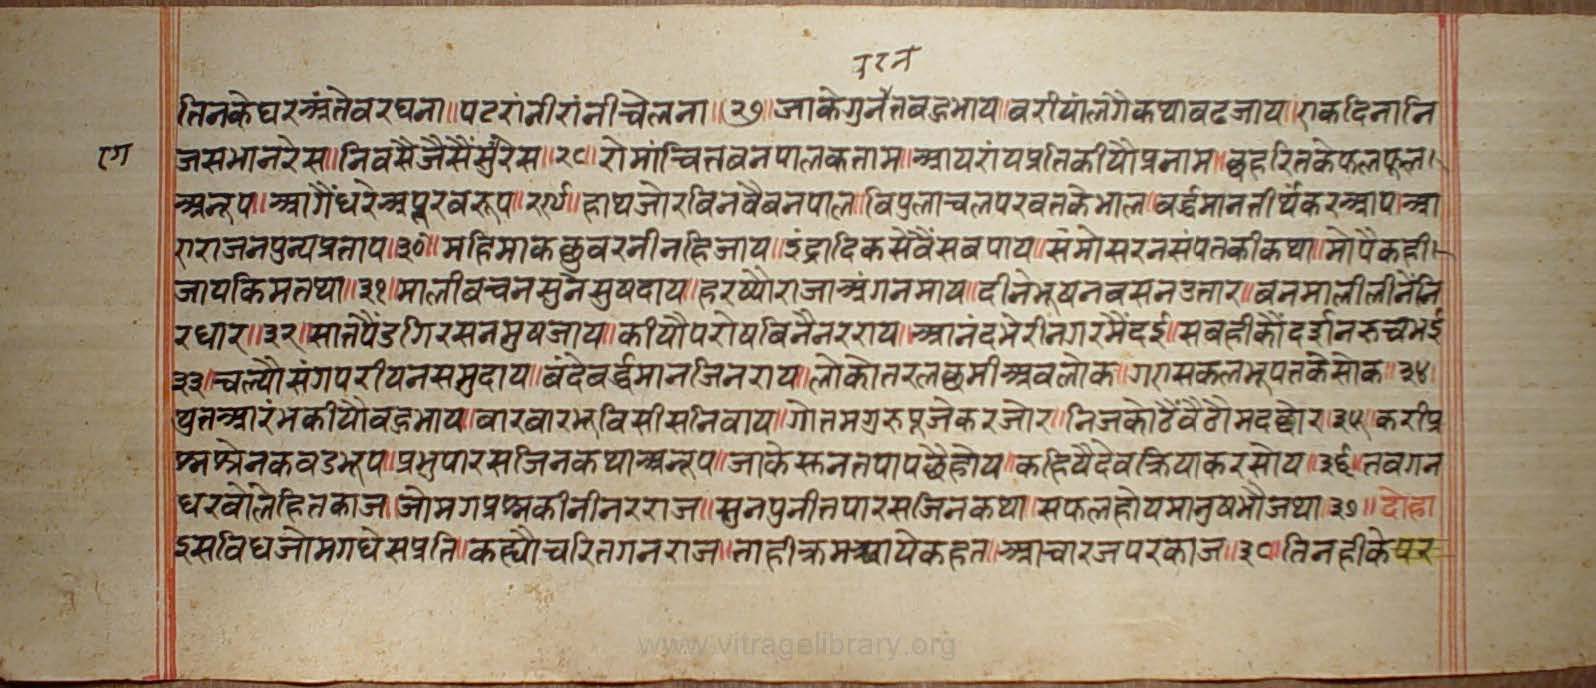 तिनकेघरअंतेवरघना॥पटरांनीरांनीचेलना॥२७॥जाकेगुनंतवद्रभाय॥वरीयांलेगैकथावढजाय॥एकदिनांनि
जसभानरेस॥निवसैजैसैंसुरेस॥२८॥रोमांचिततवनपालकताम॥आयरांयप्रतिकीयौप्रनाम॥छहरितकेफलफूल
अनूप॥आगैंधरेअपूरवरूप॥२९॥हाथजोरविनवैबनपाल॥विपुलाचलपरवतकेभाल॥वर्द्धमानतीर्थंकरआप॥आ
एराजनपुन्यप्रताप॥३०॥महिमाकछुवरनीनहिजाय॥इंद्रादिकसेवैंसबपाय॥संमोसरनसंपतकीकथा॥मोपैकही
जायकिमतथा॥३१॥मालीबचनसुनेसुषदाय॥हरष्यौराजाअंगनमाय॥दीनेभूषनबसनउतार॥बनमालीलीनेंनि
रधार॥३२॥सातपैंडगिरसनमुषजाय॥कीयौपरोषबिनैनरराय॥आनंदभेरीनगरमैंदई॥सबहीकौंदर्शनरुचभई
३३॥चल्यौसंगपरीयनसमुदाय॥बंदेवर्द्धमानजिनराय॥लोकोतरलछमीअवलोक॥गएसकलभूपतकेसोक॥३४॥
थुतआरंभकीयौवद्रभाय॥बारबारभूविसीसनिवाय॥गोतमगुरुपूजेकरजोर॥निजकोठैंबैठौमदछोर॥३५॥करीप्र
श्नश्रेनकवडभूप॥प्रभुपारसजिनकथाअनूप॥जाकेसुनतपापछैहोय॥कहियैदेवक्रियाकरसोय॥३६॥तवगन
धरवोलेहितकाज॥जोमगप्रश्नकीनीनरराज॥सुनपुनीतपारसजिनकथा॥सफलहोयमानुषभौजथा॥३७॥दोहा
इसविधजोमगधेसप्रति॥कह्यौचरितगनराज॥ताहीक्रमआयेकहत॥आचारजपरकाज॥३८॥तिनहीकेपर